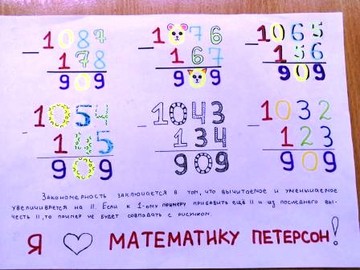 1087 1076 1065
- 178 - 167 - 156
909 909 909
1054 1043 1032
- 145 - 134 - 123
909 909 909
Закономерность заключается в том, что вычитаемое и уменьшаемое
увеличивается на 11. Если к 1-ому примеру прибавить ещё 11 и из последнего вы-
честь 11, то пример не будет совпадать с рисунком.
Я ♡ МАТЕМАТИКУ ПЕТЕРСОН!